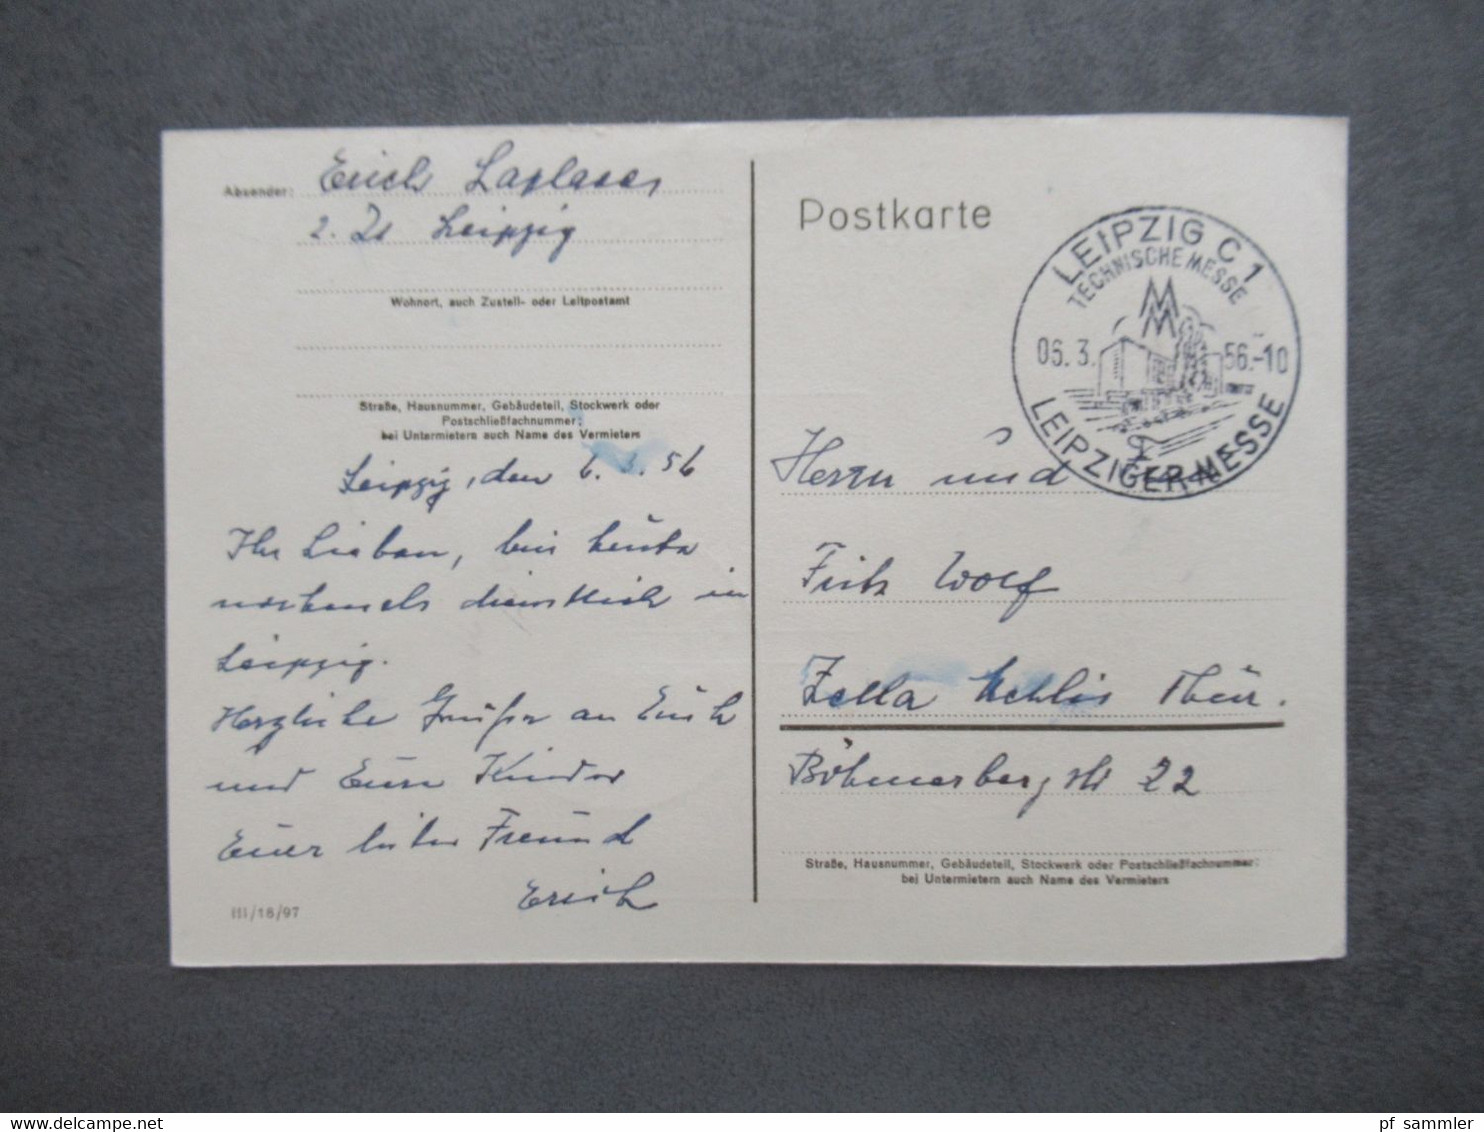 Absender: Erich
z. Zt Leipzig
Wohnort, auch Zustell- oder Leitpostamt
Straße, Hausnummer, Gebäudeteil, Stockwerk oder
Postschließfachnummer:
bei Untermietern auch Name des Vermieters
Leipzig, den 6. 3. 56
Ihr Lieben, bin heute
nochmals dienstlich in
Leipzig.
Herzliche Grüße an Euch
und Eure Kinder
Euer lieber Freund
Erich
III/18/97
Postkarte
LEIPZIG C 1
TECHNISCHE MESSE
MM
06. 3. 56.-10
LEIPZIGER MESSE
Herrn und
Fritz Wolf
Zella Mehlis Thür.
Böhmerbergstr 22
Straße, Hausnummer, Gebäudeteil, Stockwerk oder Postschließfachnummer:
bei Untermietern auch Name des Vermieters
delcampe.net
pf_sammler